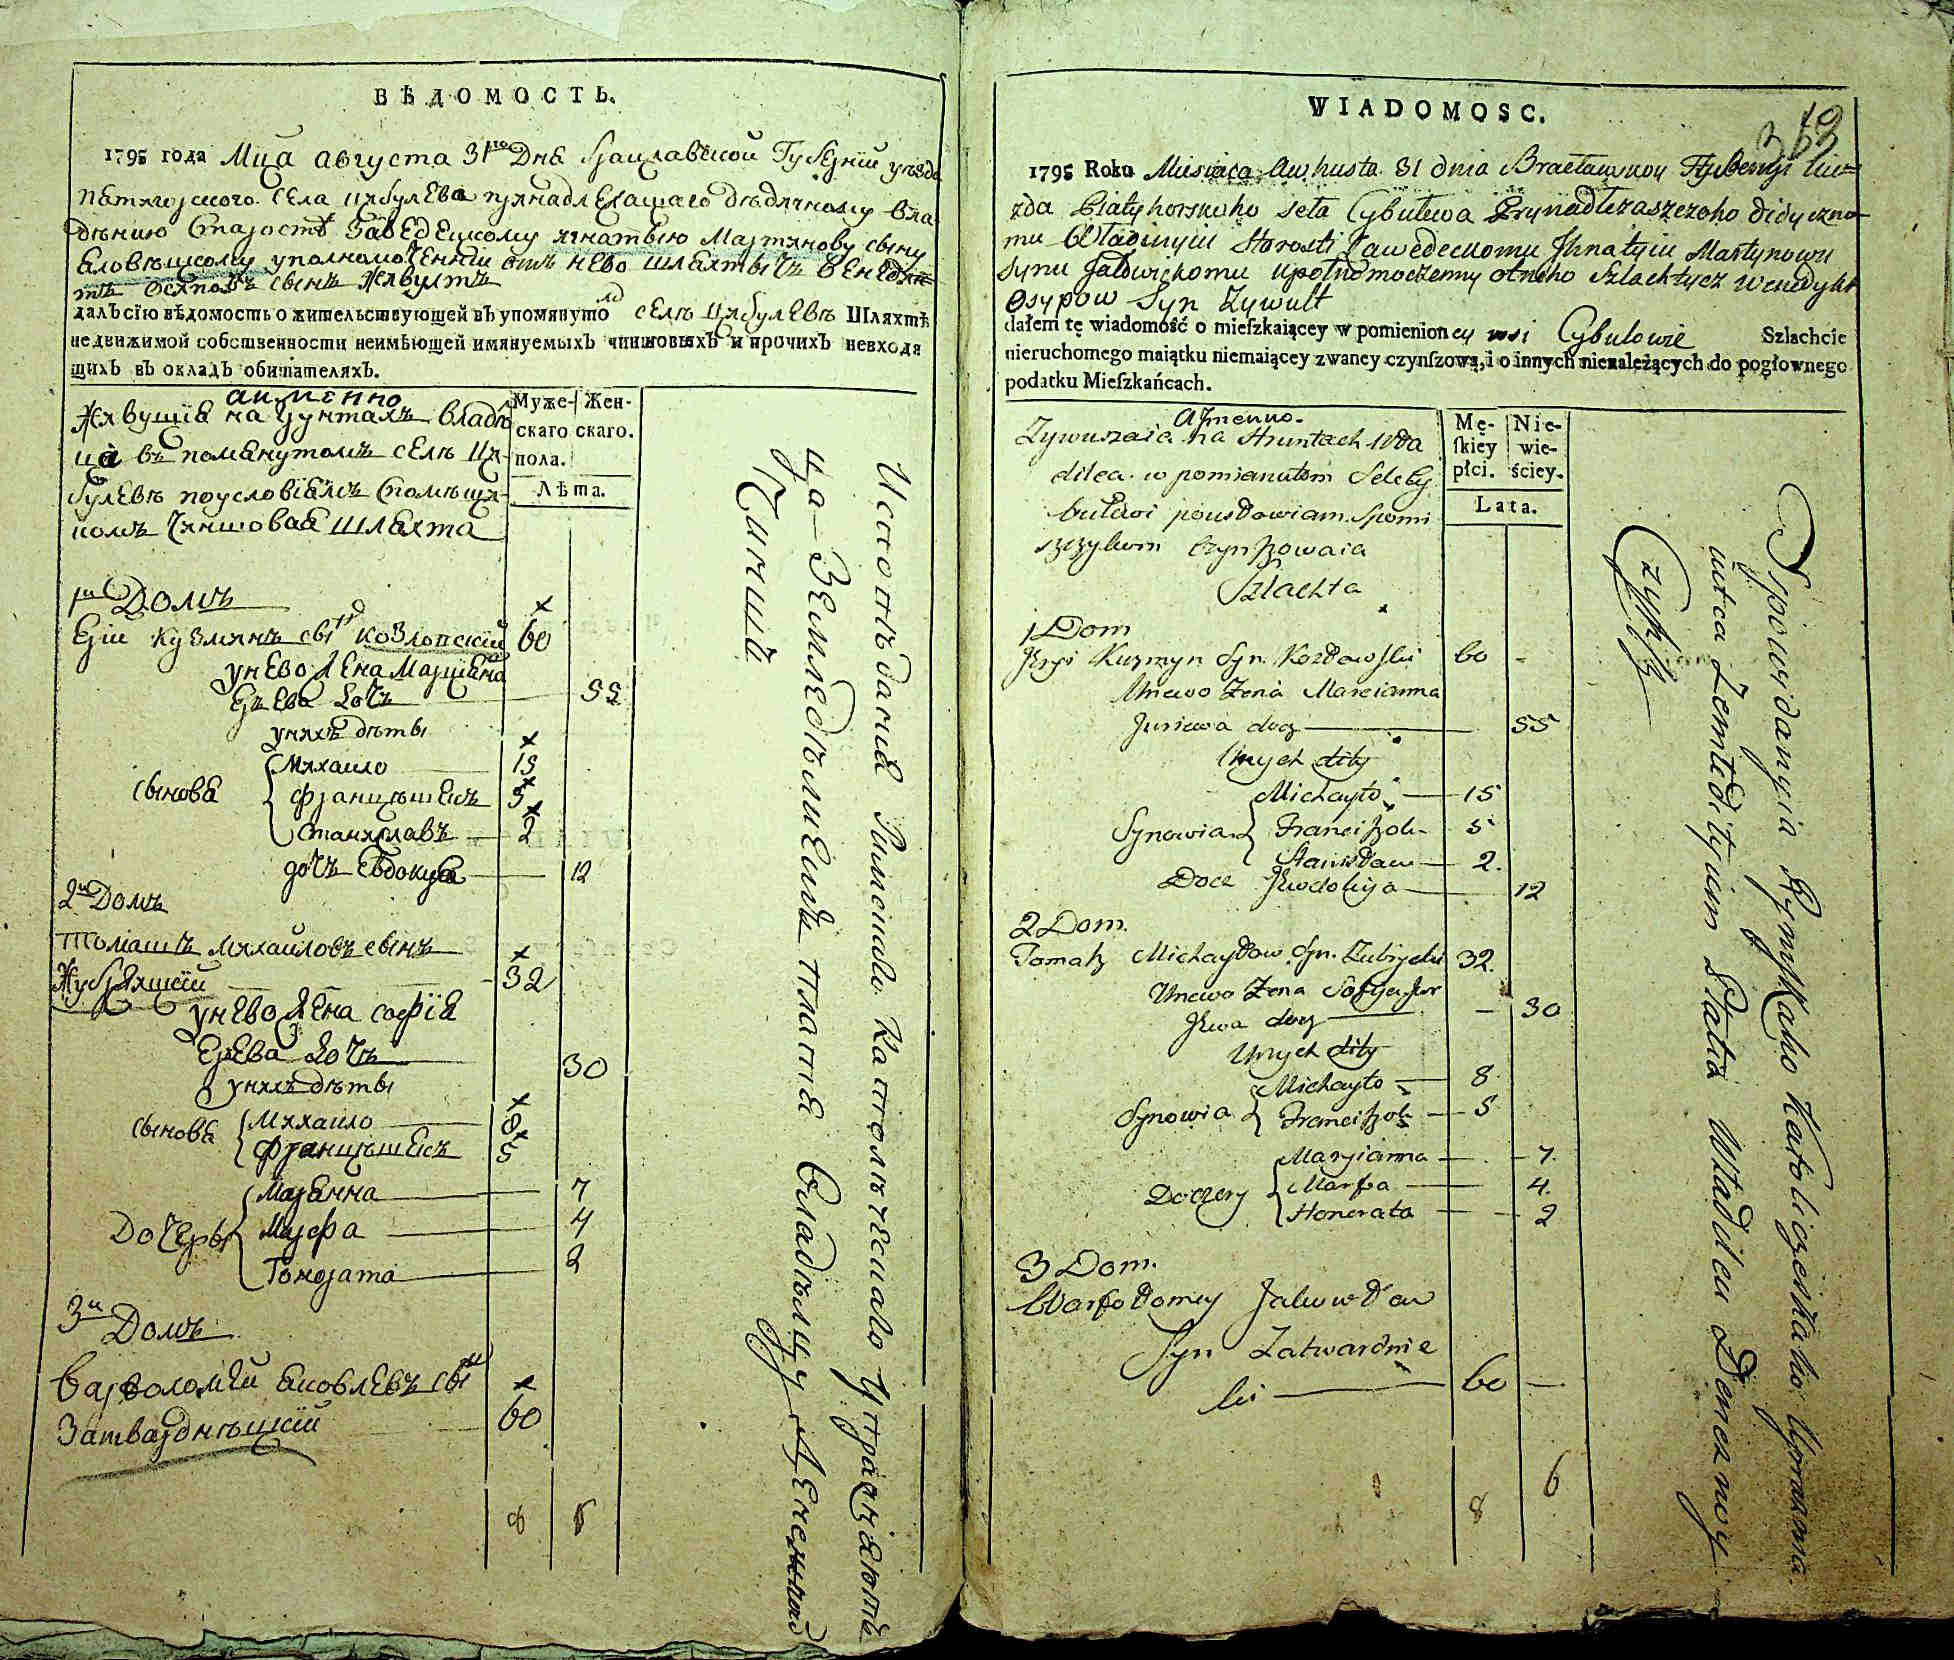 ВѢДОМОСТЬ.
1795 года Мца августа 31го Дня Брацлавской Губернии уезда
пятигорского села Цибулева принадлежащаго дедичному вла
дению Старосте Заведецкому игнатию Мартинову сыну
уполномоченний отъ нево шляхтычъ Бенедик
тъ Осиповъ сынъ Живултъ
далъ сію вѣдомость о жительствующей въ упомянуто селе Цибулеве Шляхтѣ
недвижимой собственности неимѣющей имянуемыхъ чиншовыхъ и прочихъ невходя
щихъ въ окладъ обитателяхъ.
аименно
Живущие на грунтахъ владел
ца въ помянутомъ селе Ци
булеве поусловиямъ Спомещи
комъ Чиншовая шляхта
Муже- Жен-
скаго скаго.
пола.
Лѣта.
1й Домъ
Юрiи Кузминъ сынъ Козловский 60
унево жена Марцияна
Юрева дочъ 55
унихъ дети
сынова Михаило 15
Францышекъ 5
Станиславъ 2
дочъ Евдокия 12
2й Домъ
Томашъ Михаиловъ сынъ
Жубрицкий 32
унево жена София
Юрева дочъ 30
унихъ дети
сынова Михаило 8
Францышекъ 5
Дочери Марянна 7
Марфа 4
Гонората 2
3й Домъ
Варфоломей Яковлевъ сынъ
Затвардницкий 60
8 6
Исповедания Римскаво Католическаво Упражняюте
ца Земледелиемъ платя Владелцу Денежной
Чиншъ
WIADOMOSC.
1795 Roku Miesiaca Awhusta 31 dnia Bracławskoy Hubernyi Uie-
zda Piatyhorskoho seła Cybułewa Prynadleżaszczoho didyczno
mu Władinyiu Starosti Zawedeckomu Ihnatyiu Martynowu
synu upołnomoczenny otneho Szlachtycz Wenedykt
Osypow Syn Zywult
dałem tę wiadomość o mieſzkaiącey w pomienioney wsi Cybulowie Szlachcie
nieruchomego maiątku niemaiącey zwaney czynſzową, i o innych nienależących do pogłownego
podatku Mieſzkańcach.
A Imenno.
Zywuszaia na Hruntach Wła
dilca w pomianutom Sele Cy
bulewi pousłowiam Spomi
szczykom Czynszowaia
Szlachta
Mę- Nie-
ſkiey wie-
płci. ściey.
Lata.
1 Dom
Jurji Kuzmyn Syn Kozłowski 60
Unewo Żena Marcianna
Juriewa docz 55
Unych dity
Synowia Michayło 15
Franciszek 5
Stanisław 2.
Docz Jewdokija 12
2 Dom.
Tomasz Michayłow Syn. Zubrycki 32.
Unewo Żena Sofija Jur
Jewa docz 30
Unych dity
Synowia Michayło 8
Franciszek 5
Doczery Maryianna 7.
Marfa 4.
Honorata 2
3 Dom.
Warfołomey Jakowłew
Syn Zatwardnic
ki 60
8 6
Ispowidanyia Rymskaho Katoliczeskaho Uprażnia
iutca Zemledilyiem Płatia Władilcu Deneznoy
Czynsz